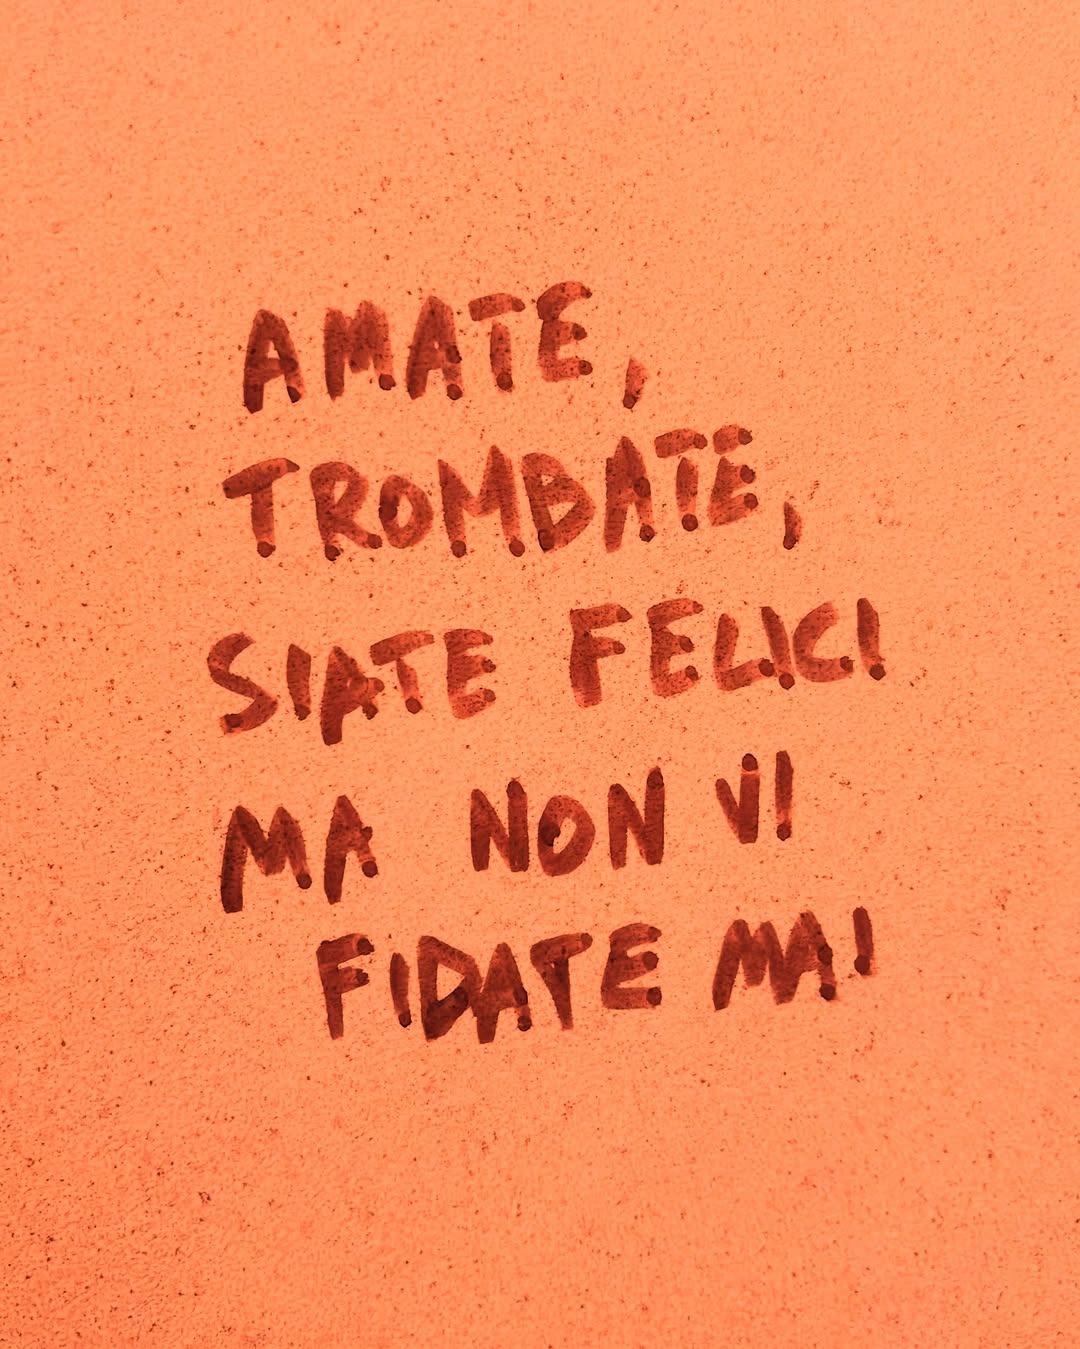 AMATE,
TROMBATE,
SIATE FELICI
MA NON VI
FIDATE MAI